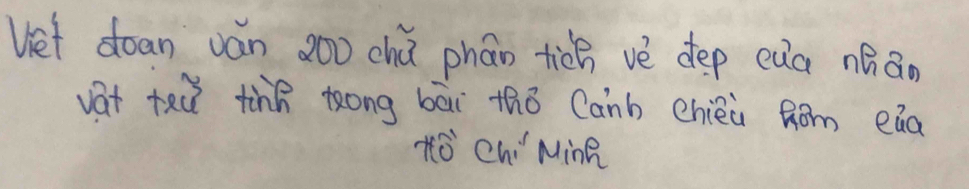 Viết đoạn văn 200 chữ phân tích vẻ đẹp của nhân
vật trữ tình trong bài thơ Cảnh chiều hôm của
Hồ Chí Minh